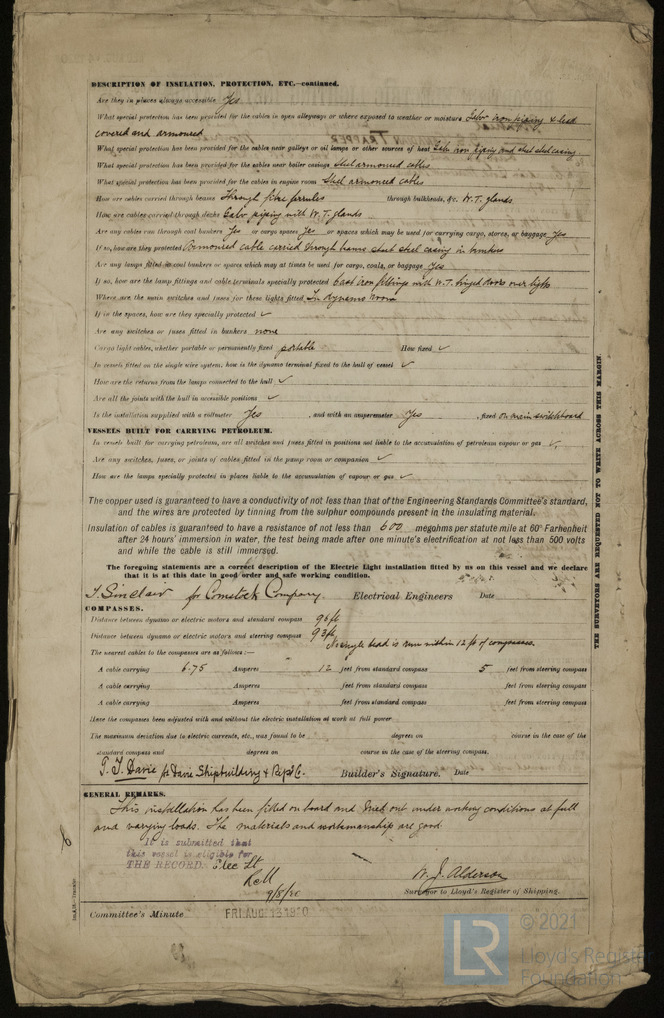 DESCRIPTION OF INSULATION, PROTECTION, ETC.—continued.
Are they in places always accessible Yes
What special protection has been provided for the cables in open alleyways or where exposed to weather or moisture Galv iron piping & lead
covered and armoured
What special protection has been provided for the cables near galleys or oil lamps or other sources of heat Galv iron piping and steel casing
What special protection has been provided for the cables near boiler casings steel armoured cables
What special protection has been provided for the cables in engine room Steel armoured cables
How are cables carried through beams Through fibre ferrules through bulkheads, &c. W.T. glands
How are cables carried through decks Galv piping with W.T. glands
Are any cables run through coal bunkers Yes or cargo spaces Yes or spaces which may be used for carrying cargo, stores, or baggage Yes
If so, how are they protected Armoured cable carried through beams sheet steel casing in bunkers
Are any lamps fitted in coal bunkers or spaces which may at times be used for cargo, coals, or baggage Yes
If so, how are the lamp fittings and cable terminals specially protected Cast iron fittings with W.T. hinged doors over lights
Where are the main switches and fuses for these lights fitted In dynamo room
If in the spaces, how are they specially protected ✓
Are any switches or fuses fitted in bunkers none
Cargo light cables, whether portable or permanently fixed portable How fixed ✓
In vessels fitted on the single wire system, how is the dynamo terminal fixed to the hull of vessel ✓
How are the returns from the lamps connected to the hull ✓
Are all the joints with the hull in accessible positions ✓
Is the installation supplied with a voltmeter Yes , and with an amperemeter Yes , fixed on main switchboard
VESSELS BUILT FOR CARRYING PETROLEUM.
In vessels built for carrying petroleum, are all switches and fuses fitted in positions not liable to the accumulation of petroleum vapour or gas ✓
Are any switches, fuses, or joints of cables fitted in the pump room or companion ✓
How are the lamps specially protected in places liable to the accumulation of vapour or gas ✓
The copper used is guaranteed to have a conductivity of not less than that of the Engineering Standards Committee's standard,
and the wires are protected by tinning from the sulphur compounds present in the insulating material.
Insulation of cables is guaranteed to have a resistance of not less than 600 megohms per statute mile at 60° Farhenheit
after 24 hours' immersion in water, the test being made after one minute's electrification at not less than 500 volts
and while the cable is still immersed.
The foregoing statements are a correct description of the Electric Light installation fitted by us on this vessel and we declare
that it is at this date in good order and safe working condition.
T. Sinclair for Comstock Company. Electrical Engineers Date
COMPASSES.
Distance between dynamo or electric motors and standard compass 96 ft
Distance between dynamo or electric motors and steering compass 93 ft
No single lead is run within 12 ft of compasses.
The nearest cables to the compasses are as follows:—
A cable carrying 6.75 Amperes 12 feet from standard compass 5 feet from steering compass
A cable carrying Amperes feet from standard compass feet from steering compass
A cable carrying Amperes feet from standard compass feet from steering compass
Have the compasses been adjusted with and without the electric installation at work at full power
The maximum deviation due to electric currents, etc., was found to be degrees on course in the case of the
standard compass and degrees on course in the case of the steering compass.
T. J. Davie for Davie Shipbuilding & Rep. Co. Builder's Signature. Date
GENERAL REMARKS.
This installation has been fitted on board and tried out under working conditions at full
and varying loads. The materials and workmanship are good
It is submitted that
this vessel is eligible for
THE RECORD. Elec Lt
9/8/20
W. J. Alderson
Surveyor to Lloyd's Register of Shipping.
Committee's Minute FRI AUG 13 1920
THE SURVEYORS ARE REQUESTED NOT TO WRITE ACROSS THIS MARGIN.
© 2021
LR Lloyd's Register
Foundation